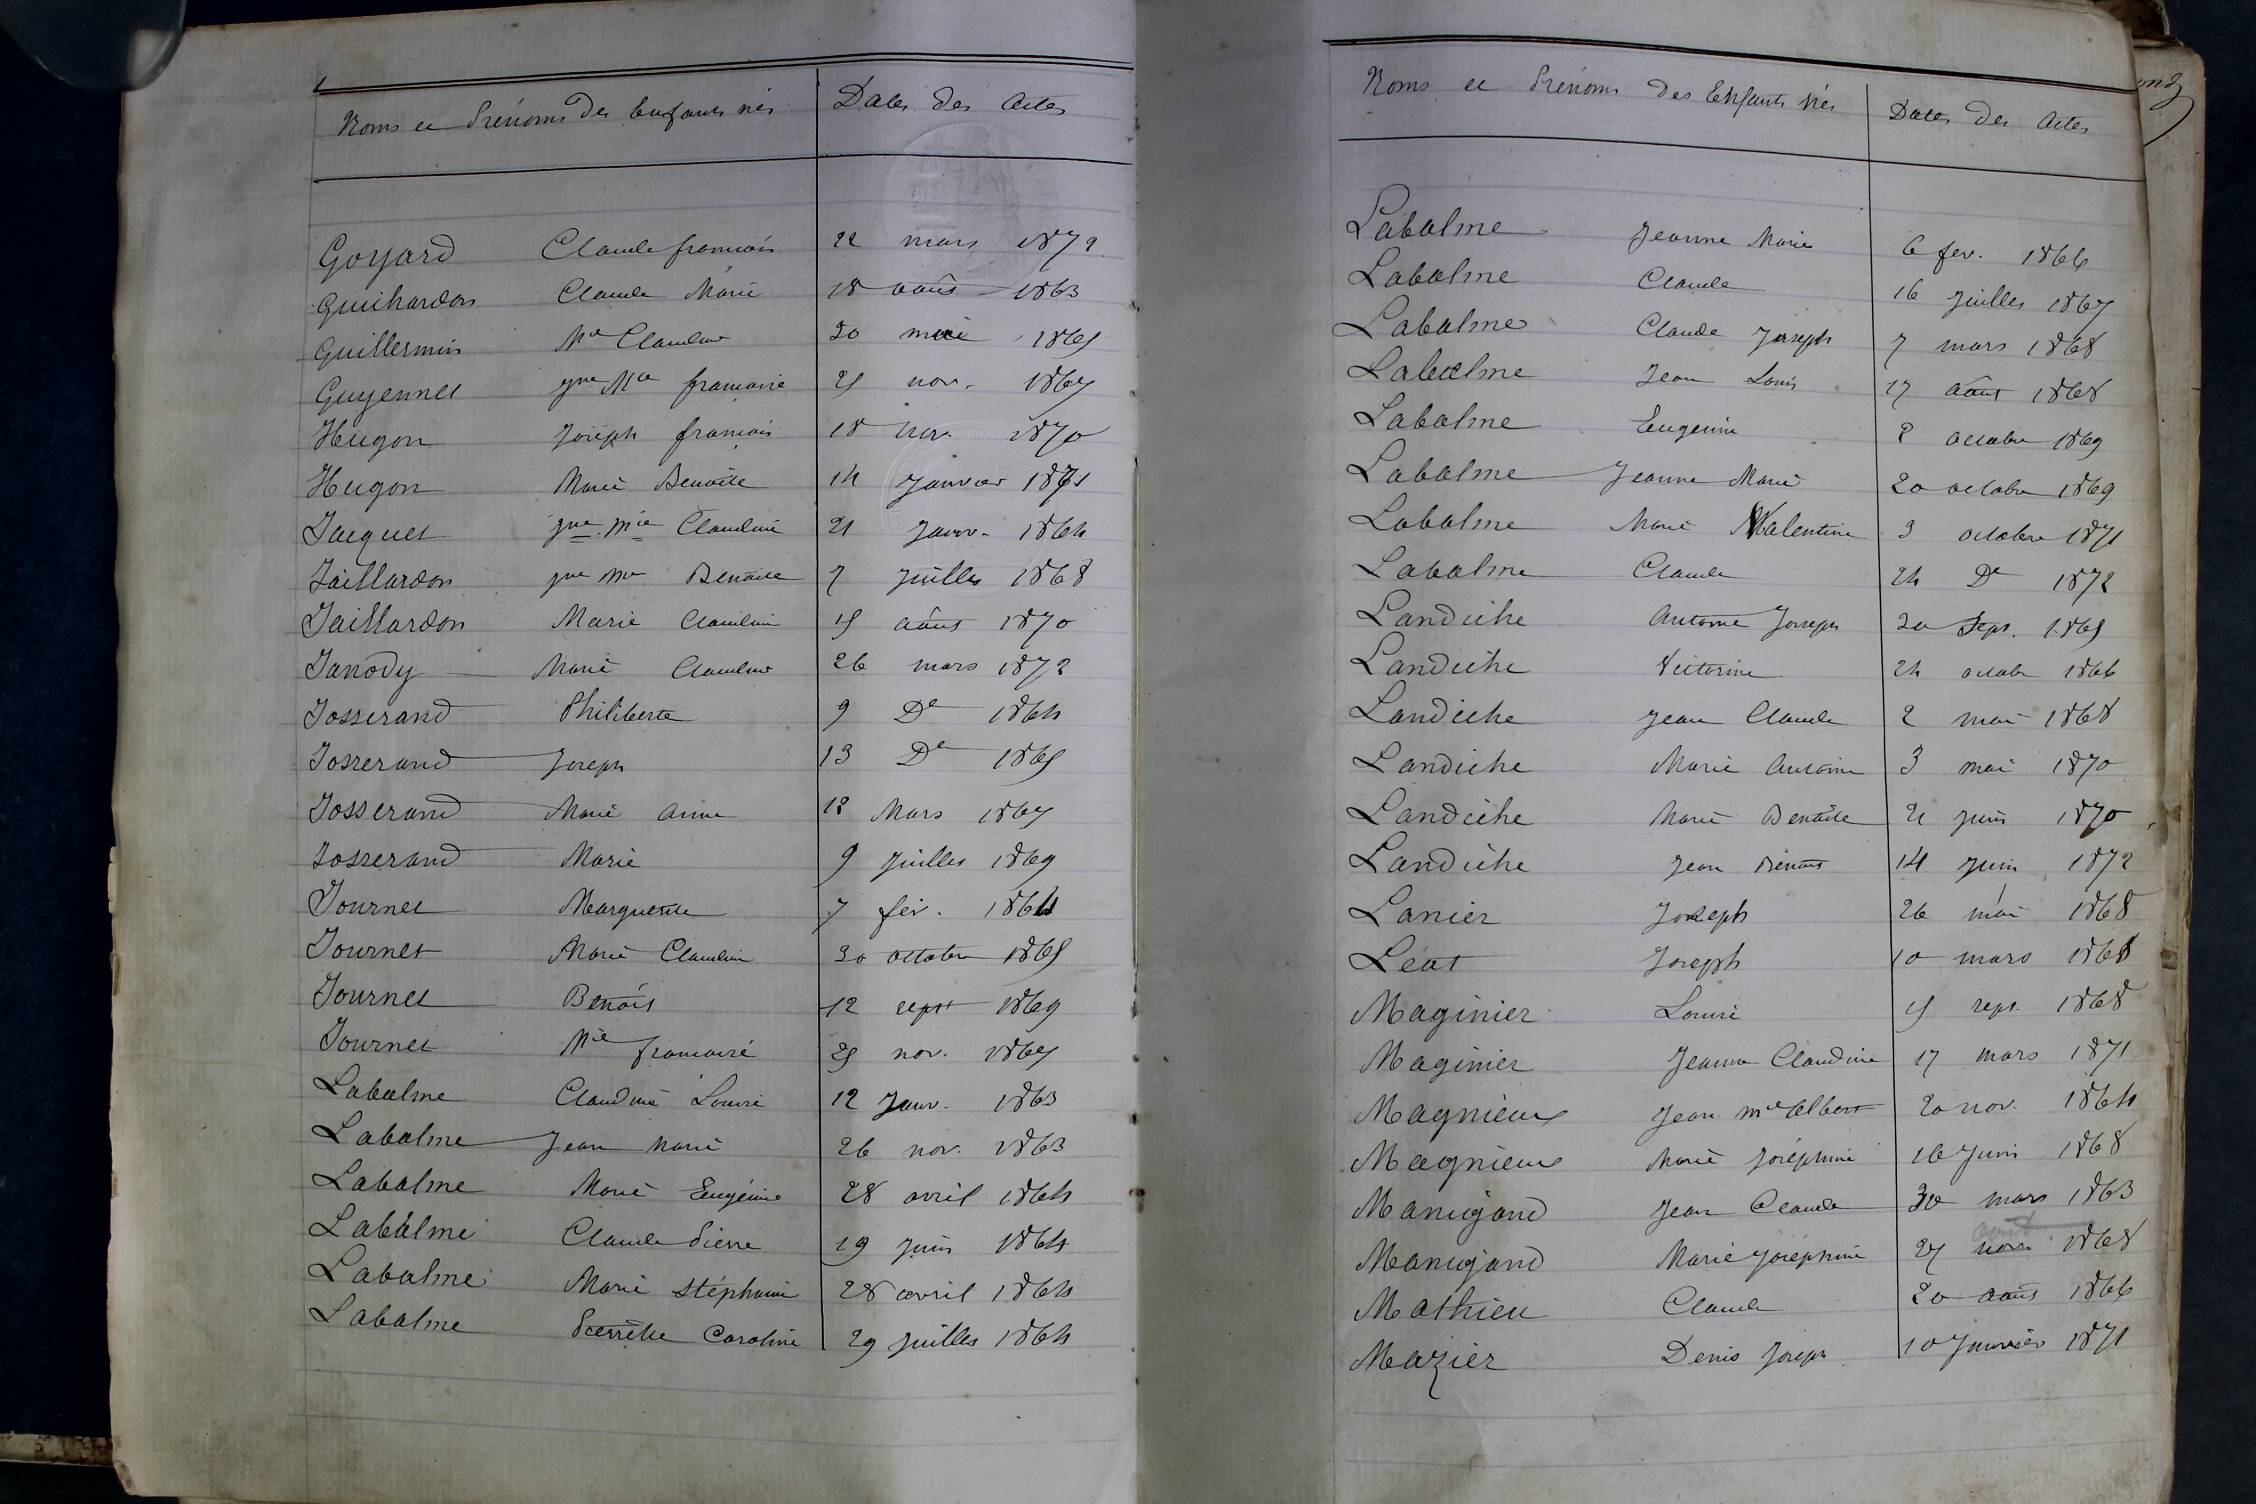 Noms et Prénoms des Enfants nés Dates des Actes
Goyard Claude françois 22 mars 1872
Guichardon Claude Marie 18 août 1863
Guillermin Mie Claudine 20 mai 1865
Guyennet Jne Mie françoise 25 nov. 1867
Hugon Joseph françois 18 nov. 1870
Hugon Marie Benoîte 14 Janvier 1871
Jacquet Jne Mie Claudine 21 Janv. 1864
Jaillardon Jne Mie Benoite 7 juillet 1868
Jaillardon Marie Claudine 15 août 1870
Janody Marie Claudine 26 mars 1872
Josserand Philiberte 9 De 1864
Josserand Joseph 13 De 1865
Josserand Marie Anne 12 Mars 1867
Josserand Marie 9 Juillet 1869
Journet Marguerite 7 fév. 1864
Journet Marie Claudine 30 octobre 1865
Journet Benoît 12 sept 1869
Journet Mie françoise 25 nov. 1867
Labalme Claudine Louise 12 Janv. 1863
Labalme Jean Marie 26 nov. 1863
Labalme Marie Eugénie 28 avril 1864
Labalme Claude Pierre 19 Juin 1864
Labalme Marie Stéphanie 28 avril 1864
Labalme Pierrette Caroline 29 Juillet 1864
Noms et Prénoms des Enfants Nés Dates des Actes
Labalme Jeanne Marie 6 fev. 1866
Labalme Claude 16 Juillet 1867
Labalme Claude Joseph 7 mars 1868
Labalme Jean Louis 17 août 1868
Labalme Eugenie 2 octobre 1869
Labalme Jeanne Marie 20 octobre 1869
Labalme Marie Valentine 3 octobre 1871
Labalme Claude 24 De 1872
Landiche Antoine Joseph 20 Sept. 1865
Landiche Victorine 24 octobre 1866
Landiche Jean Claude 2 mai 1868
Landiche Marie Antoine 3 mai 1870
Landiche Marie Benoîte 21 juin 1870
Landiche Jean Benoît 14 Juin 1872
Lanier Joseph 26 mai 1868
Léat Joseph 10 mars 1868
Maginier Louise 15 sept. 1868
Maginier Jeanne Claudine 17 mars 1871
Magnieux Jean Mie Albert 20 nov. 1864
Magnieux Marie Joséphine 16 Juin 1868
Manigand Jean Claude 30 mars 1863
août
Manigand Marie Joséphine 27 1868
Mathieu Claude 20 août 1866
Mazier Denis Joseph 10 Janvier 1871